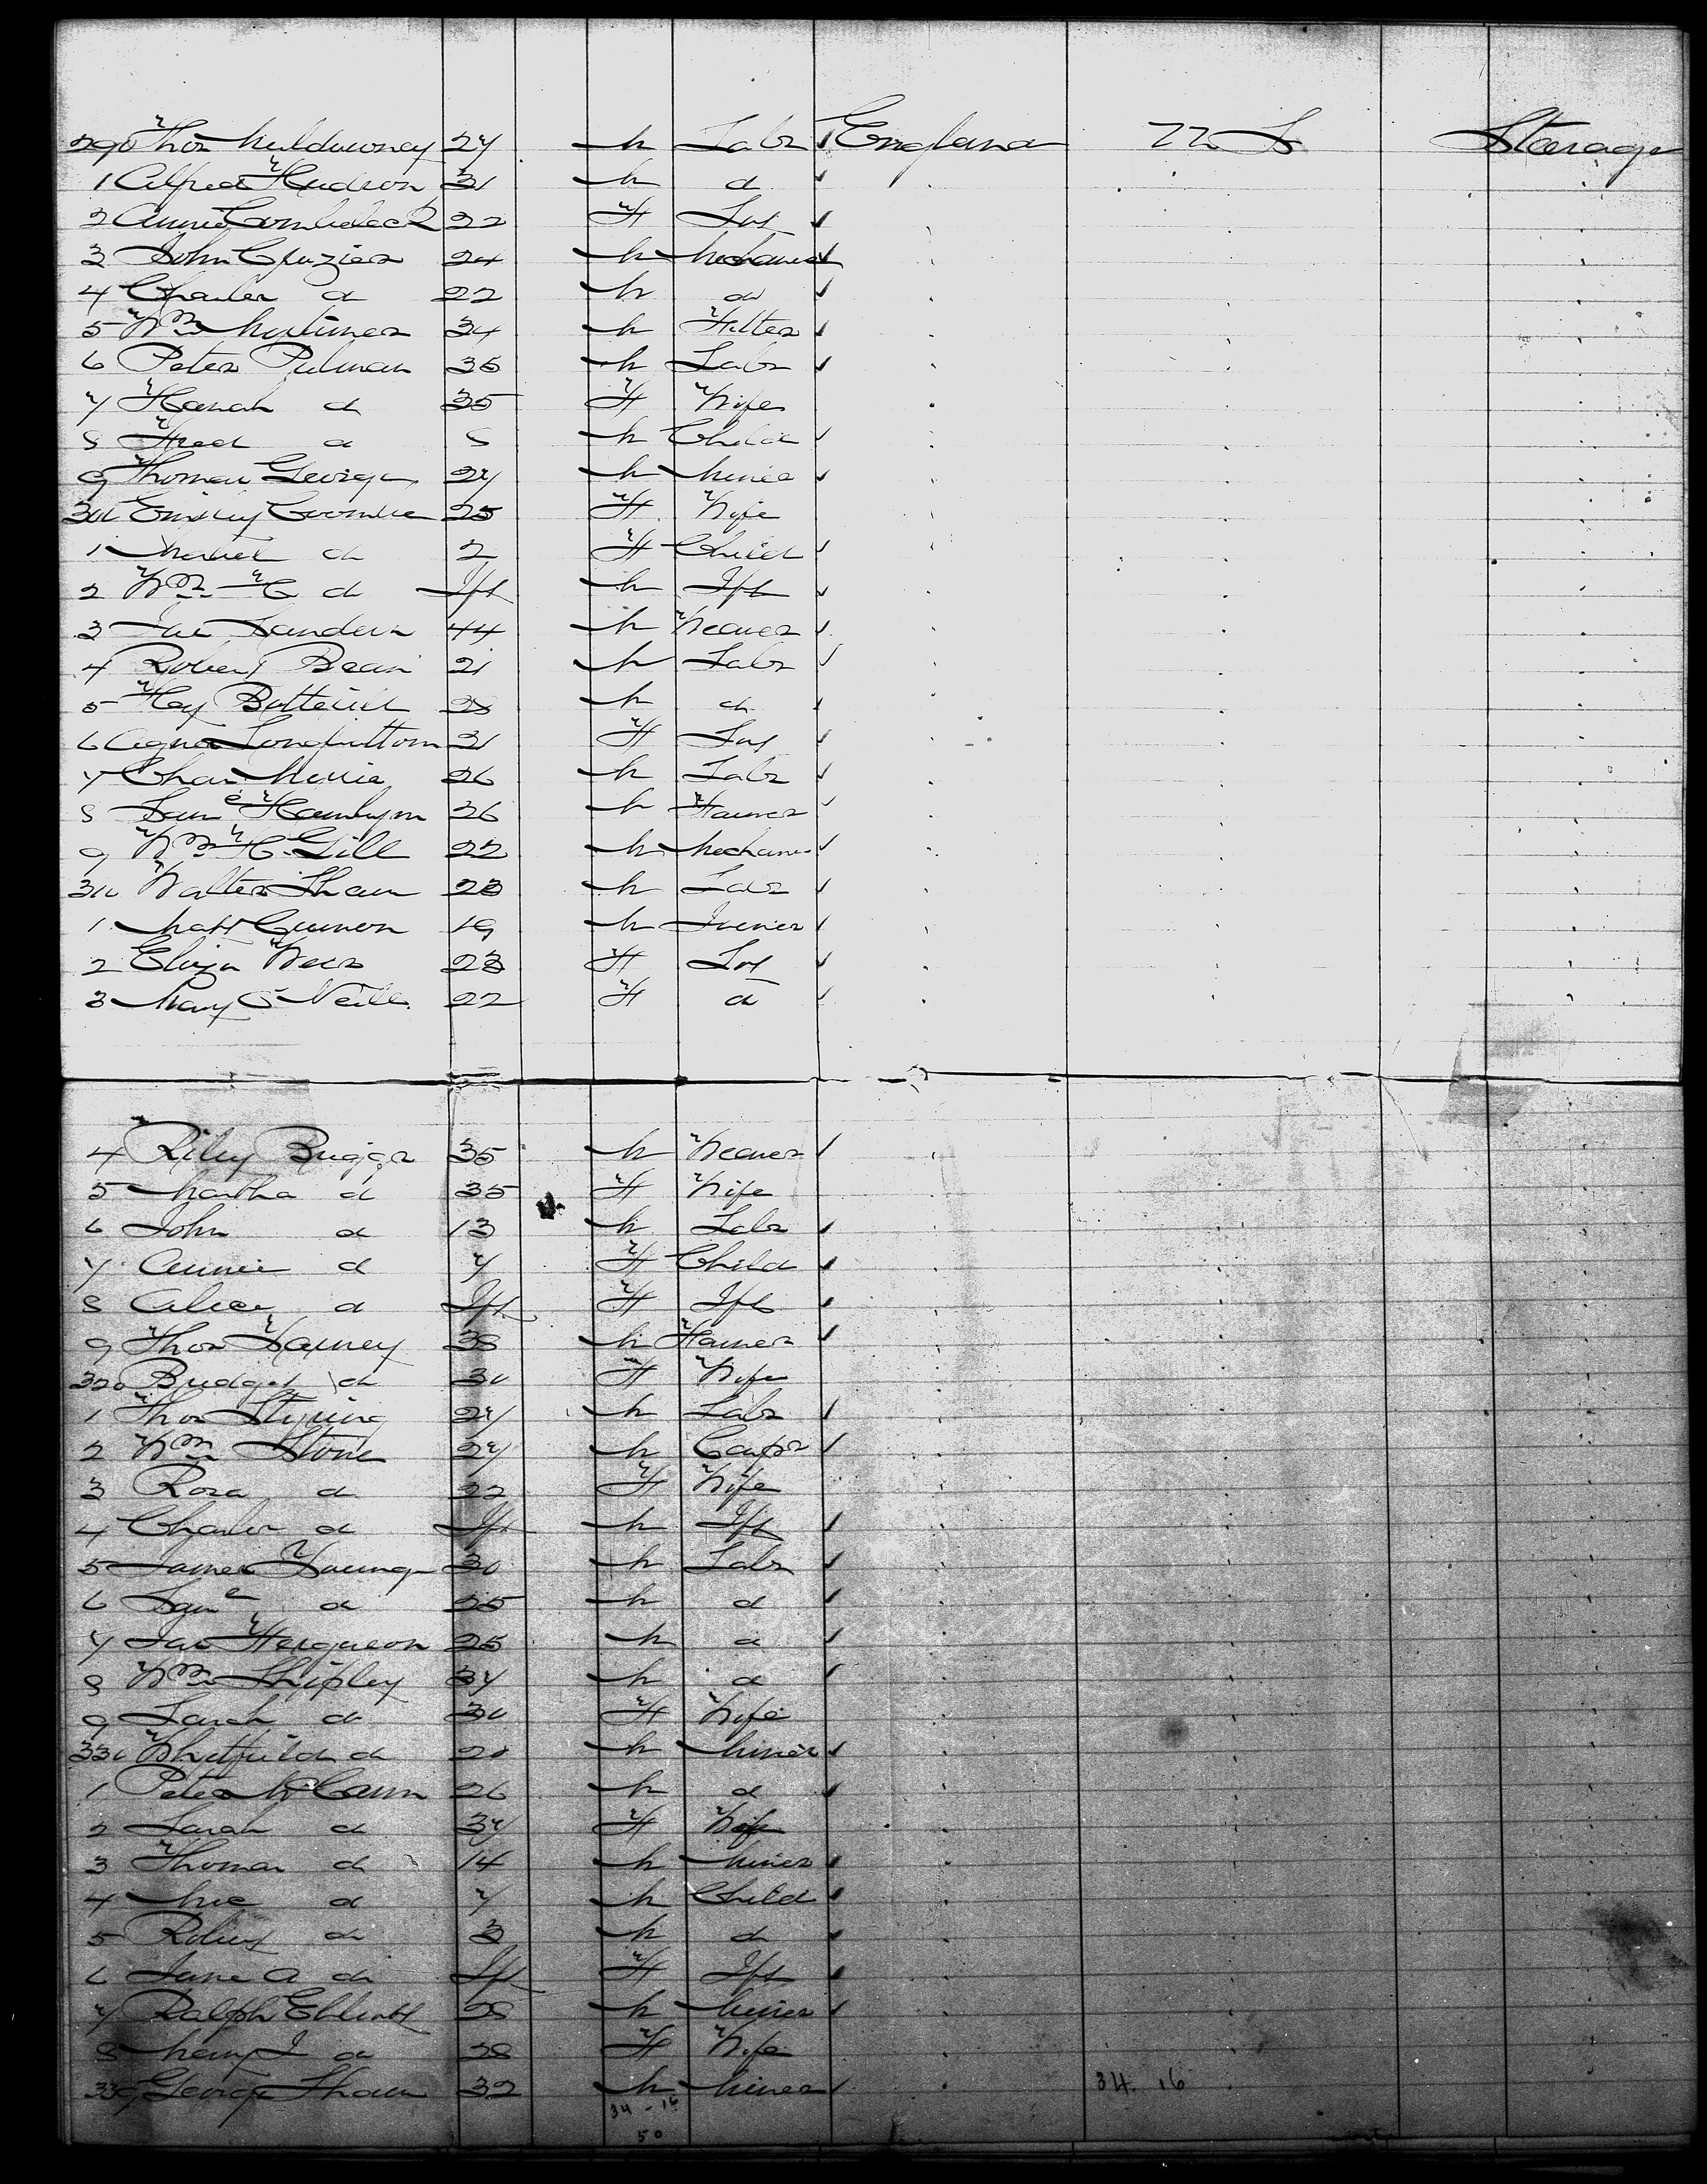 290 Thos Muldowney 27 M Labr England U S Steerage
1 Alfred Hudson 31 M d
2 Annie 22 F Svt
3 John Crozier 24 M Mechanic
4 Charles d 22 M d
5 Wm Mortimer 34 M Fitter
6 Peter Pulman 36 M Labr
7 Hanah d 35 F Wife
8 Fred d 5 M Child
9 Thomas George 27 M Miner
300 Emily Coombe 25 F Wife
1 Mabel d 2 F Child
2 Wm H d Ift M Ift
3 Jas Sanders 44 M Weaver
4 Robert Bean 21 M Labr
5 Hey 28 M d
6 Agnes Longbottom 21 F Svt
7 Chas 26 M Labr
8 Saml Hamlyn 26 M Farmer
9 Wm H Gill 22 M Mechanic
310 Walter Shaw 28 M Labr
1 Matt 19 M Joiner
2 Eliza Weir 23 F Svt
3 Mary O'Neill 22 F d
4 Riley Briggs 35 M Weaver
5 Martha d 35 F Wife
6 John d 13 M Labr
7 Annie d 7 F Child
8 Alice d Ift F Ift
9 Thos 38 M Farmer
320 Bridget d 30 F Wife
1 Thos Styring 27 M Labr
2 Wm Stone 27 M Carpr
3 Rosa d 22 F Wife
4 Charles d Ift M Ift
5 James Young 30 M Labr
6 Saml d 25 M d
7 Jas Ferguson 25 M d
8 Wm Shipley 37 M d
9 Sarah d 30 F Wife
330 Whitfield d 20 M Miner
1 Peter McCann 26 M d
2 Sarah d 37 F Wife
3 Thomas d 14 M Miner
4 Mic d 7 M Child
5 Robert d 3 M d
6 Jane A d Ift F Ift
7 Ralph Elliott 28 M Miner
8 Mary J d 28 F Wife
339 George Shaw 32 M Miner 34. 16
34 - 16
50